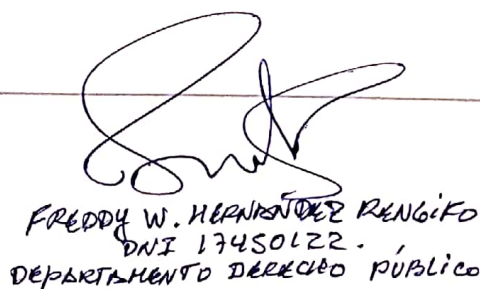 FREDDY W. HERNÁNDEZ RENGIFO
DNI 17450122.
DEPARTAMENTO DERECHO PÚBLICO